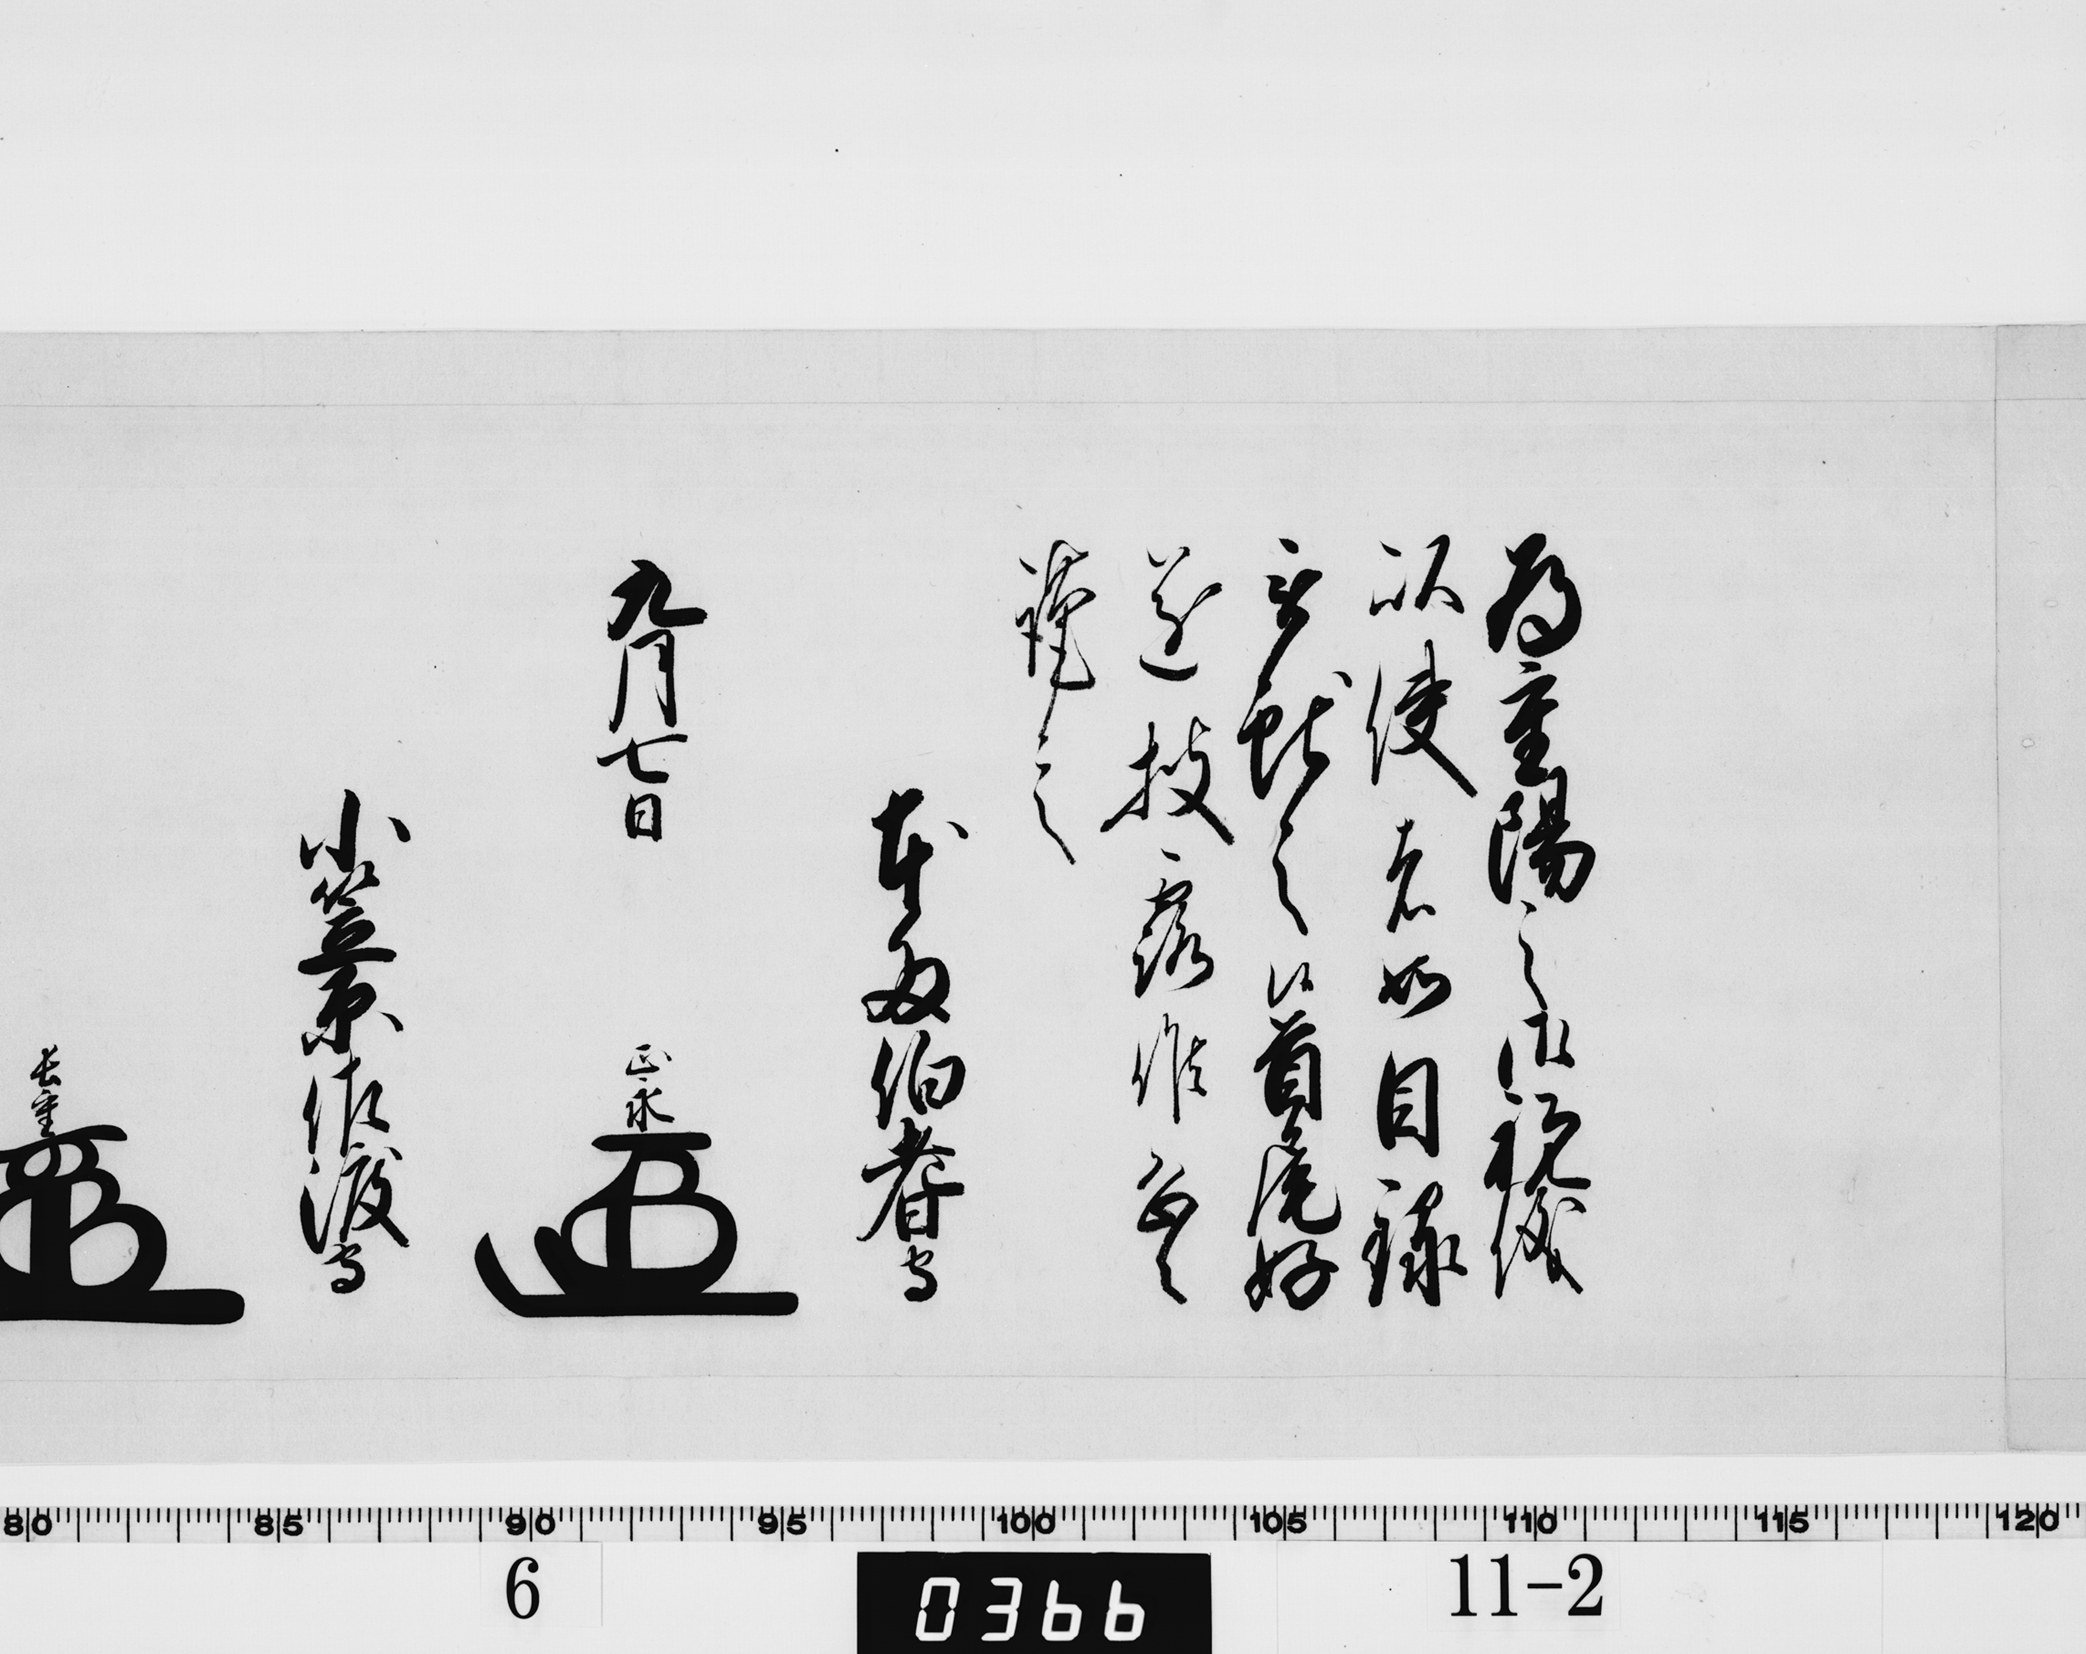 為重陽之御祝儀
以使者如目録
被献之候首尾好
遂披露候恐々
謹言
本多伯耆守
九月七日
正永
小笠原佐渡守
長重
80 85 90 95 100 105 110 115 120
6
0366
11-2